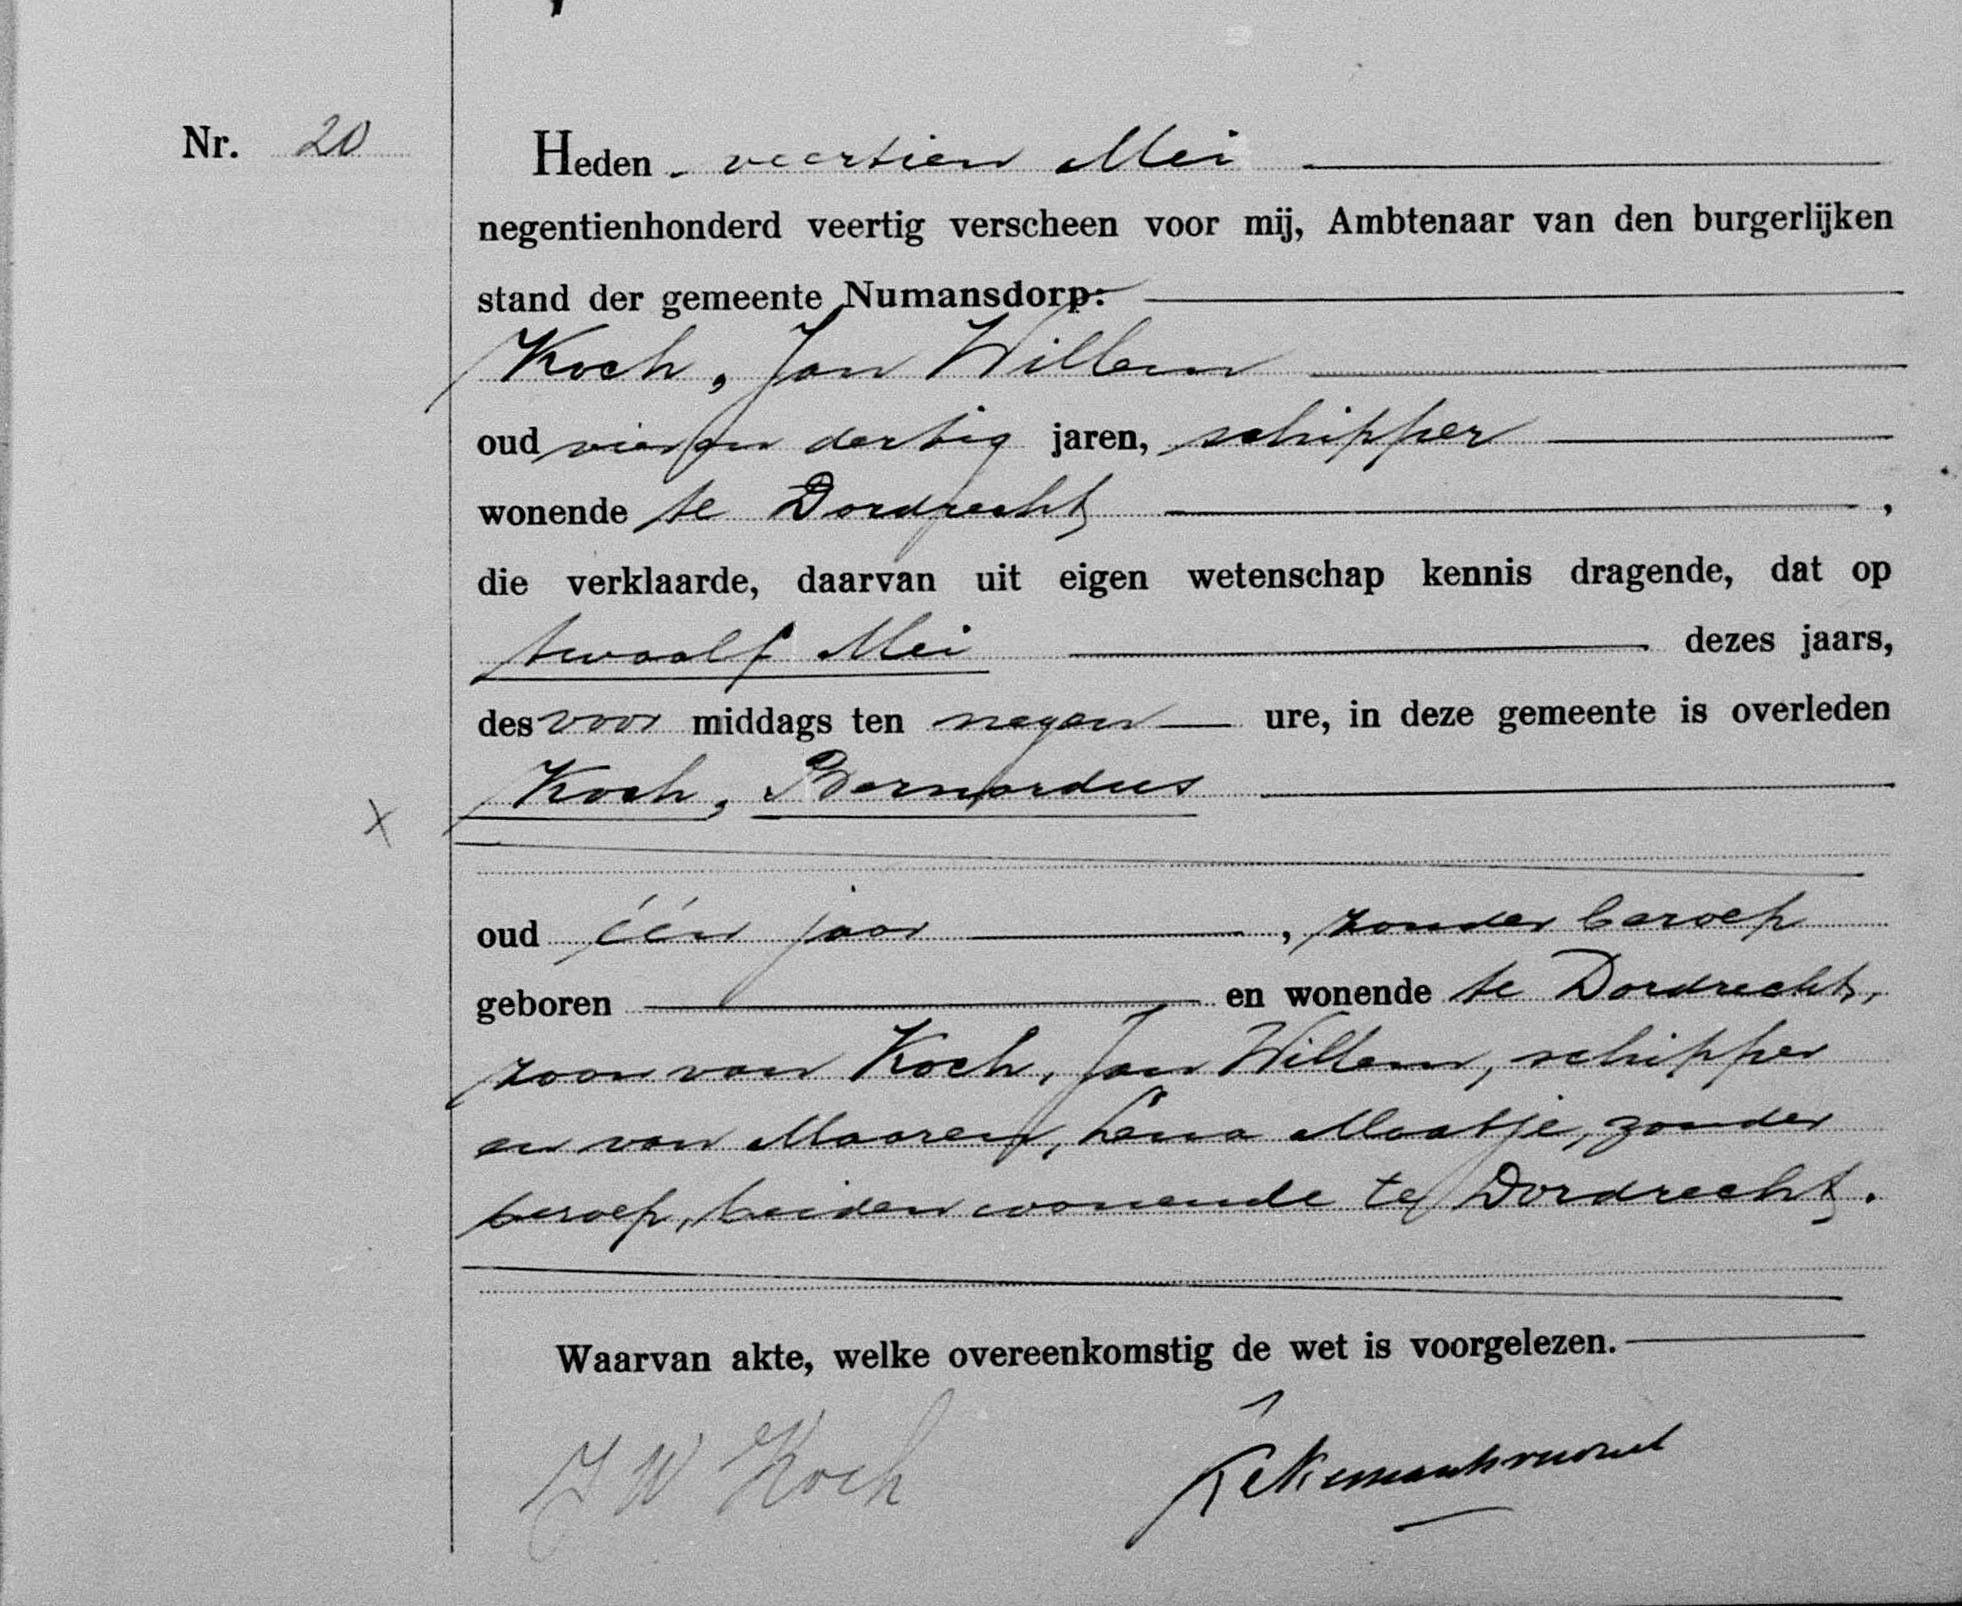 Nr. 20
Heden - veertien Mei
negentienhonderd veertig verscheen voor mij, Ambtenaar van den burgerlijken
stand der gemeente Numansdorp:
Koch, Jan Willem
oud vier en dertig jaren, schipper
wonende te Dordrecht,
die verklaarde, daarvan uit eigen wetenschap kennis dragende, dat op
twaalf Mei dezes jaars,
des voor middags ten negen ure, in deze gemeente is overleden
Koch, Bernardus
oud één jaar, zonder beroep
geboren en wonende te Dordrecht,
zoon van Koch, Jan Willem, schipper
en van Maaren, Lena Maatje, zonder
beroep, beiden wonende te Dordrecht.
Waarvan akte, welke overeenkomstig de wet is voorgelezen.
J W Koch